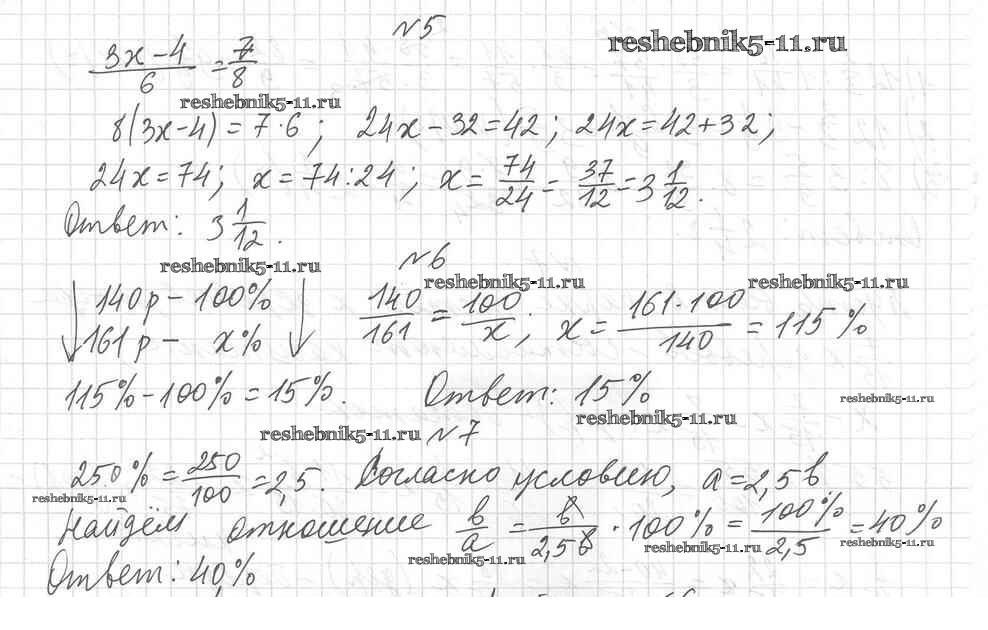 №5
reshebnik5-11.ru
(3x-4)/6 = 7/8
reshebnik5-11.ru
8(3x-4) = 7·6; 24x-32=42; 24x=42+32;
24x=74; x=74:24; x= 74/24 = 37/12 = 3 1/12.
Ответ: 3 1/12.
reshebnik5-11.ru
№6
reshebnik5-11.ru
reshebnik5-11.ru
↓ 140р - 100% ↓ 140/161 = 100/x; x = 161·100/140 = 115%
161р - x%
115%-100%=15%. Ответ: 15%
reshebnik5-11.ru
reshebnik5-11.ru
reshebnik5-11.ru
№7
250% = 250/100 = 2,5. Согласно условию, a=2,5b
reshebnik5-11.ru
Найдём отношение b/a = b/2,5b · 100% = 100%/2,5 = 40%
reshebnik5-11.ru
reshebnik5-11.ru
reshebnik5-11.ru
Ответ: 40%